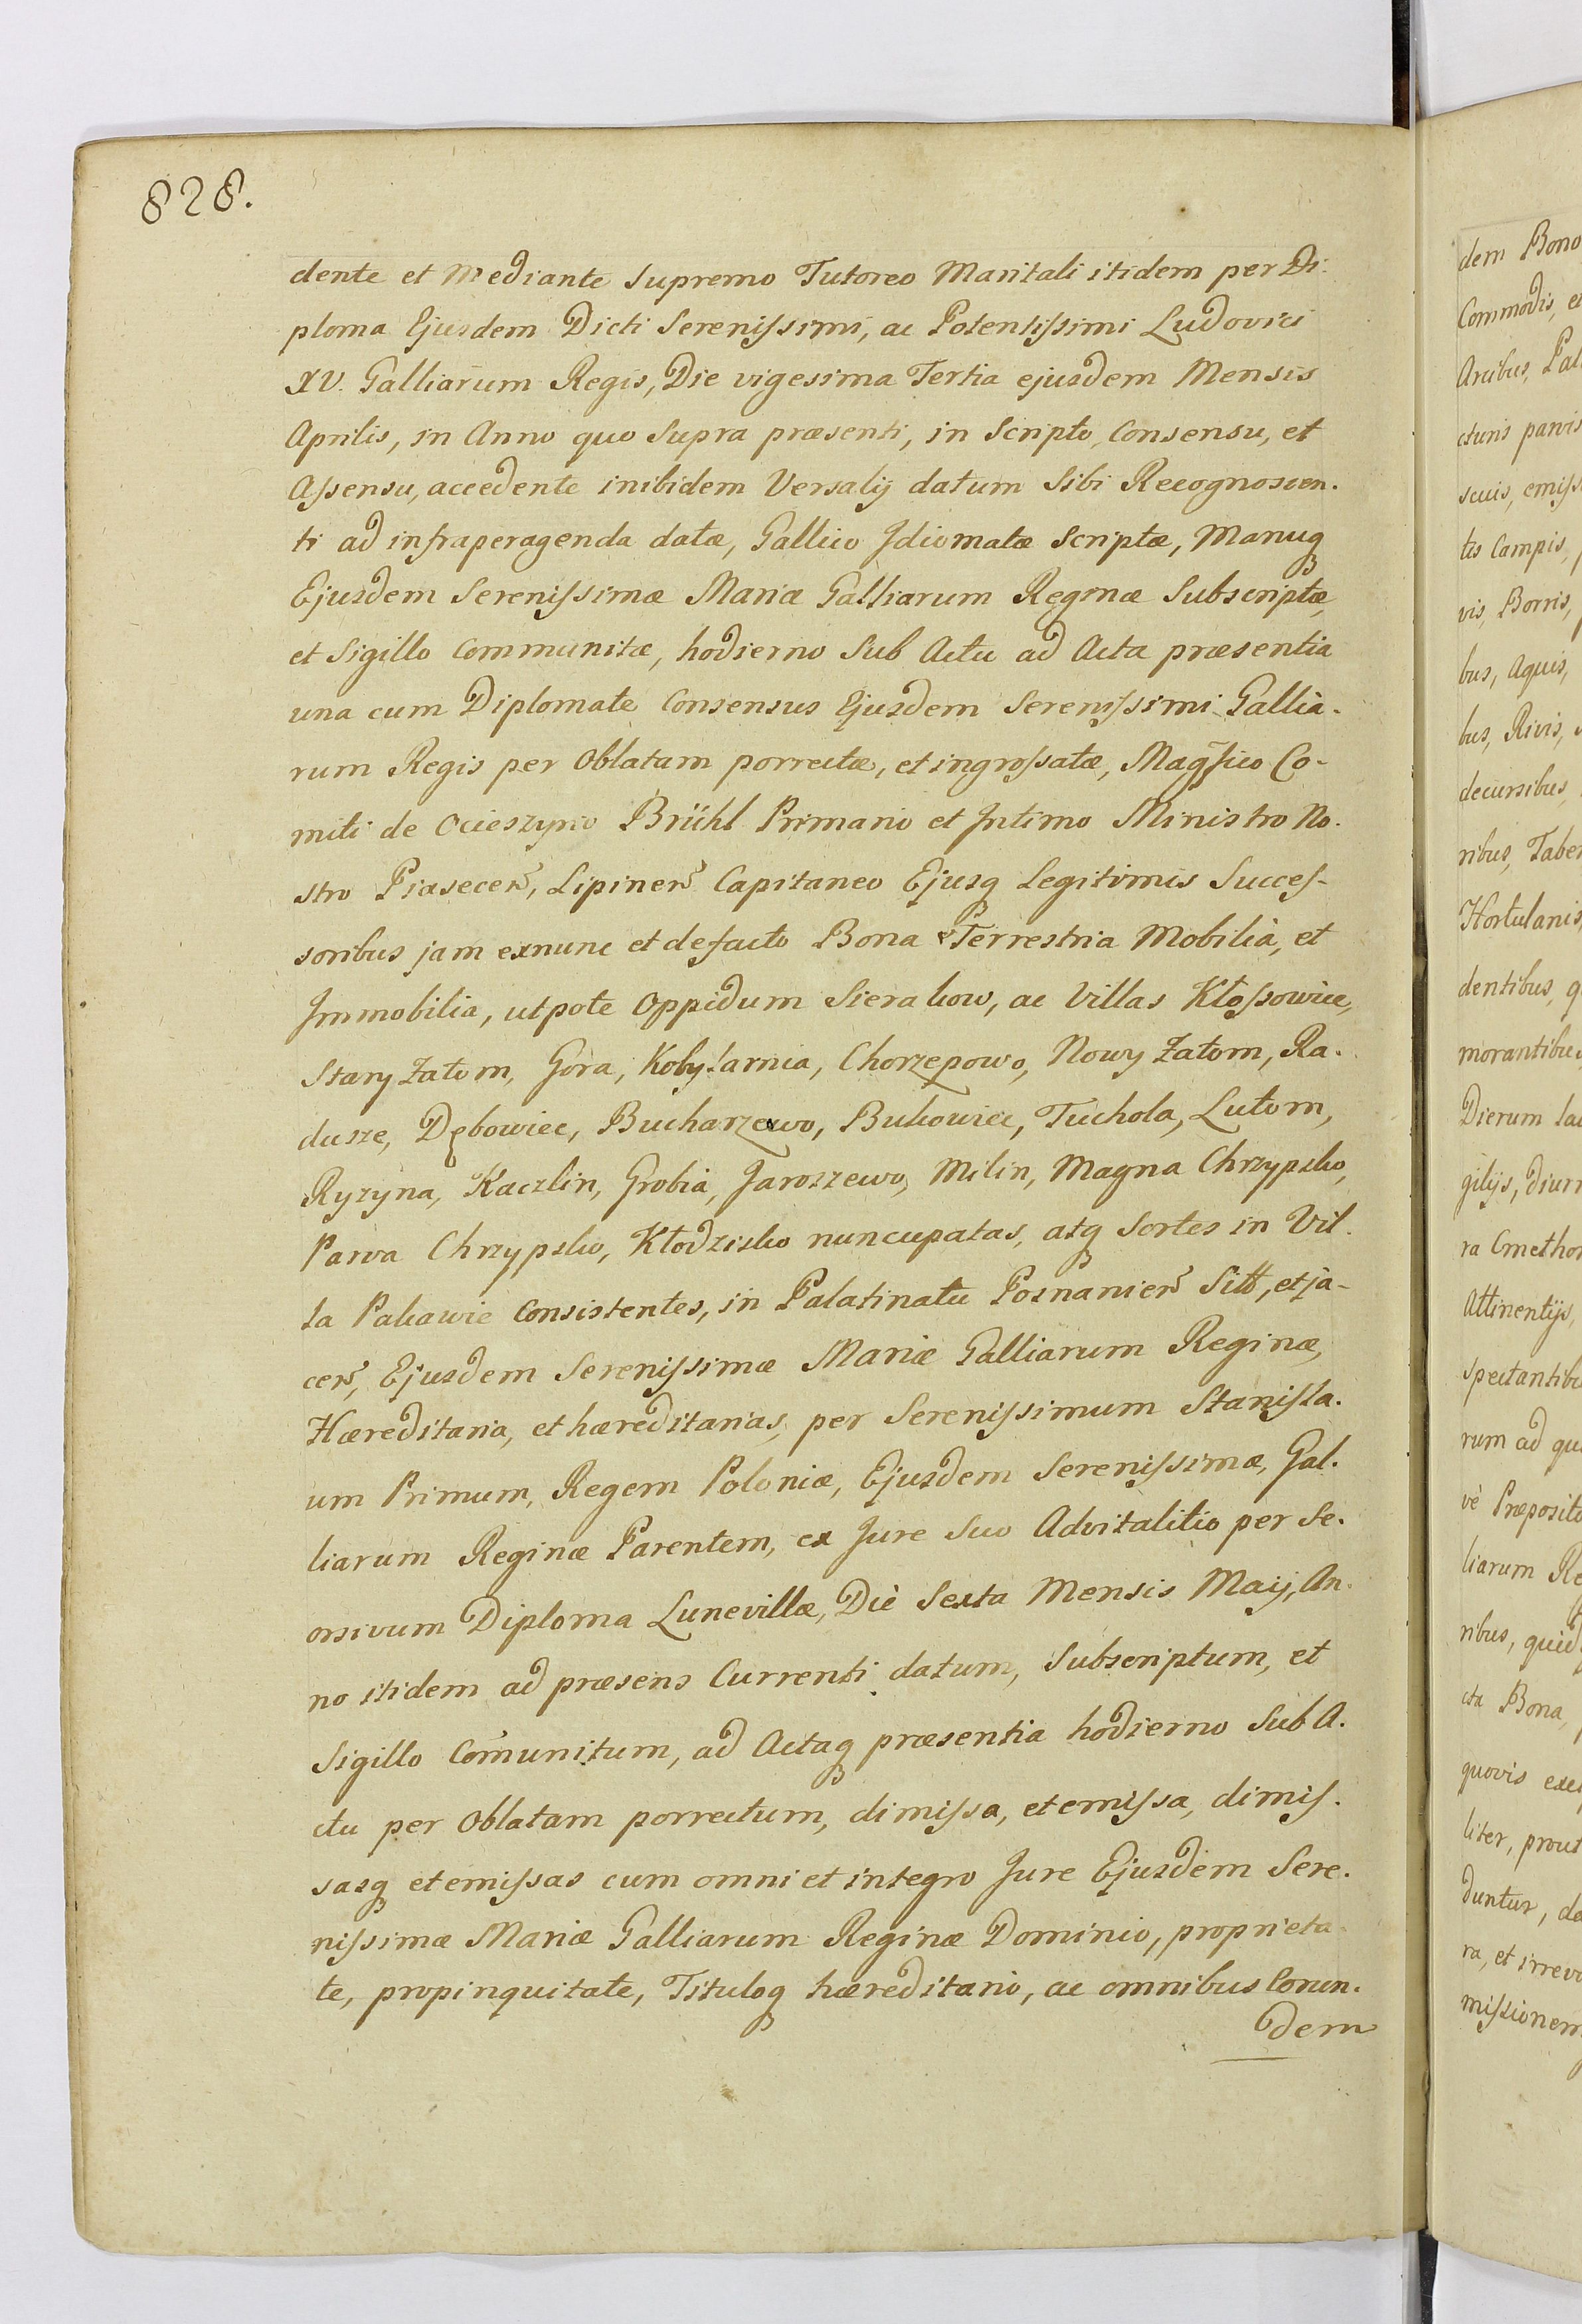 828.
dente et Mediante Supremo Tutoreo Maritali itidem per Di-
ploma Ejusdem Dicti Serenissimi, ac Potentissimi Ludovici
XV. Galliarum Regis, Die vigesima Tertia ejusdem Mensis
Aprilis, in Anno quo Supra præsenti, in Scripto, Consensu, et
Assensu, accedente inibidem Versalij datum Sibi Recognoscen-
ti ad infraperagenda datæ, Gallico Idiomatæ Scriptæ, Manuq
Ejusdem Serenissimæ Mariæ Galliarum Reginæ Subscriptæ,
et Sigillo Communitæ, hodierno Sub Actu ad Acta præsentia
una cum Diplomate Consensus Ejusdem Serenissimi Gallia-
rum Regis per Oblatam porrectæ, et ingrossatæ, Magfico Co-
miti de Ocieszyno Brühl Primario et Intimo Ministro No-
stro Piasecen, Lipinen Capitaneo Ejusq Legitimis Succes-
soribus jam exnunc et defacto Bona Terrestria Mobilia, et
Immobilia, utpote Oppidum Sierakow, ac Villas Kłossowice,
Stary Zatom, Gora, Kobylarnia, Chorzepowo, Nowy Zatom, Ra-
dusze, Dębowiec, Bucharzewo, Bukowiec, Tuchola, Lutom,
Ryzyna, Kaczlin, Grobia, Jaroszewo, Milin, Magna Chrzypsko,
Parva Chrzypsko, Kłodzisko nuncupatas, atq Sortes in Vil-
la Pakawie Consistentes, in Palatinatu Posnanien Sitt, et ja-
cen, Ejusdem Serenissimæ Mariæ Galliarum Reginæ,
Hæreditaria, et hæreditarias, per Serenissimum Stanisla-
um Primum, Regem Poloniæ, Ejusdem Serenissimæ, Gal-
liarum Reginæ Parentem, ex Jure Suo Advitalitio per Se-
orsivum Diploma Lunevillæ, Diè Sexta Mensis Maij, An-
no itidem ad præsens Currenti datum, Subscriptum, et
Sigillo Comunitum, ad Actaq præsentia hodierno Sub A-
ctu per Oblatam porrectum, dimissa, et emissa, dimis-
sasq et emissas cum omni et integro Jure Ejusdem Sere-
nissimæ Mariæ Galliarum Reginæ Dominio, proprieta-
te, propinquitate, Tituloq hæreditario, ac omnibus Eorun-
dem
dem Bono
Commodis, et
Arcibus, Pal
cturis parvis
scuis, emiss
tis Campis,
vis, Borris,
bus, Aquis,
bus, Rivis,
decursibus,
ribus, Taber
Hortulanis,
dentibus, q
morantibus
Dierum la
gilijs, diurn
ra Cmethon
Attinentijs,
spectantibu
rum ad qu
vè Præposito
liarum Re
ribus, quid
cta Bona,
quovis exc
liter, prout
duntur, de
ra, et irrevo
missionem